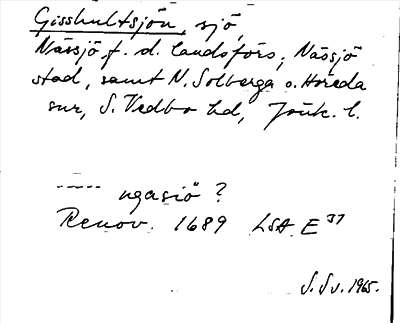 Gisshultsjön, sjö,
Nässjö f. d. landsförs; Nässjö
stad, samt N. Solberga o. Höreda
snr, S. Vedbo hd, Jönk. l.
----- ngasiö ?
Renov. 1689 LSA E 37
S. Sv. 1965.